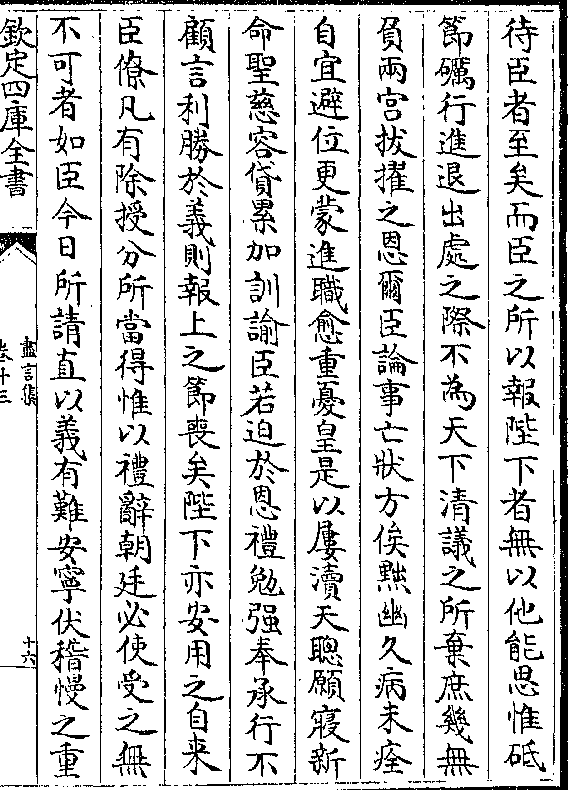 待臣者至矣而臣之所以報陛下者無以他能思惟砥
節礪行進退出處之際不為天下清議之所棄庶幾無
負兩宮拔擢之恩爾臣論事亡狀方俟黜幽久病未痊
自宜避位更蒙進職愈重憂皇是以屢瀆天聰願寢新
命聖慈容貸累加訓諭臣若迫於恩禮勉强奉承行不
顧言利勝於義則報上之節喪矣陛下亦安用之自来
臣僚凡有除授分所當得惟以禮辭朝廷必使受之無
不可者如臣今日所請直以義有難安寧伏稽慢之重
欽定四庫全書
盡言集
卷十三
十六